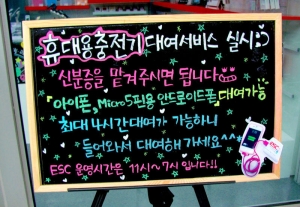 휴대용충전기 대여서비스 실시:)
신분증을 맡겨주시면 됩니다
"아이폰, Micro5핀용 안드로이드폰" 대여가능
최대 4시간 대여가 가능하니
들어와서 대여해 가세요^^
ESC 운영시간은 11시~7시 입니다!!